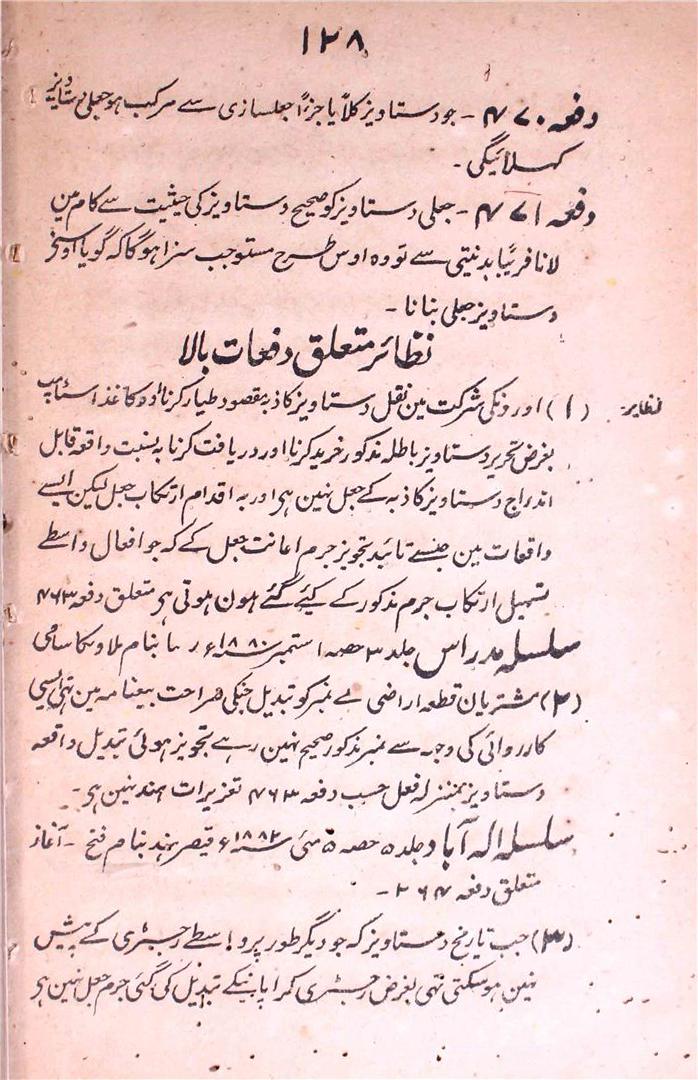 ۱۲۸
دفعہ ۴۷۰ - جو دستاویز کلاً یا جزءاً جعلسازی سے مرکب ہو جعلی دستاویز
کہلائیگی -
دفعہ ۴۷۱ - جعلی دستاویز کو صحیح دستاویز کی حیثیت سے کام مین
لانا فریباً بدنیتی سے تو وہ اوس طرح مستوجب سزا ہوگا کہ گویا اوسنے
دستاویز جعلی بنانا -
نظائر متعلق دفعات بالا
نظایر (۱) اور ونکی شرکت مین نقل دستاویز کاذبہ مقصود طیار کرنا اور کاغذ اسٹامپ
بغرض تحریر دستاویز باطلہ مذکور خرید کرنا اور دریافت کرنا بہ نسبت واقعہ قابل
اندراج دستاویز کاذبہ کے جعل نہین ہی اور نہ اقدام ارتکاب جعل لیکن ایسے
واقعات مین جنسے تائید تجویز جرم اعانت جعل کے کہ جو افعال واسطے
تسہیل ارتکاب جرم مذکور کے کیئے گئے ہون ہوتی ہی متعلق دفعہ ۴۶۳
سلسلہ مدراس جلد ۳ حصہ ۱ ستمبر ۱۸۸۰ء بنام
(۲) مشتریان قطعہ اراضی نے نمبر کو تبدیل جنکی صراحت بیعنامہ مین تھی ایسی
کارروائی کی وجہ سے نمبر مذکور صحیح نہین رہے تجویز ہوئی تبدیل واقعہ
دستاویز بمنزلہ فعل حسب دفعہ ۴۶۳ تعزیرات ہند نہین ہی -
سلسلہ الہ آباد جلد ۵ حصہ ۵ مئی ۱۸۸۲ء قیصر ہند بنام فتح - آغاز
متعلق دفعہ ۴۶۲ -
(۳) جب تاریخ دستاویز کہ جو دیگر طور پر واسطے رجسٹری کے پیش
نہین ہوسکتی تھی بغرض رجسٹری کرا پانیکے تبدیل کی گئی جرم جعل نہین ہی